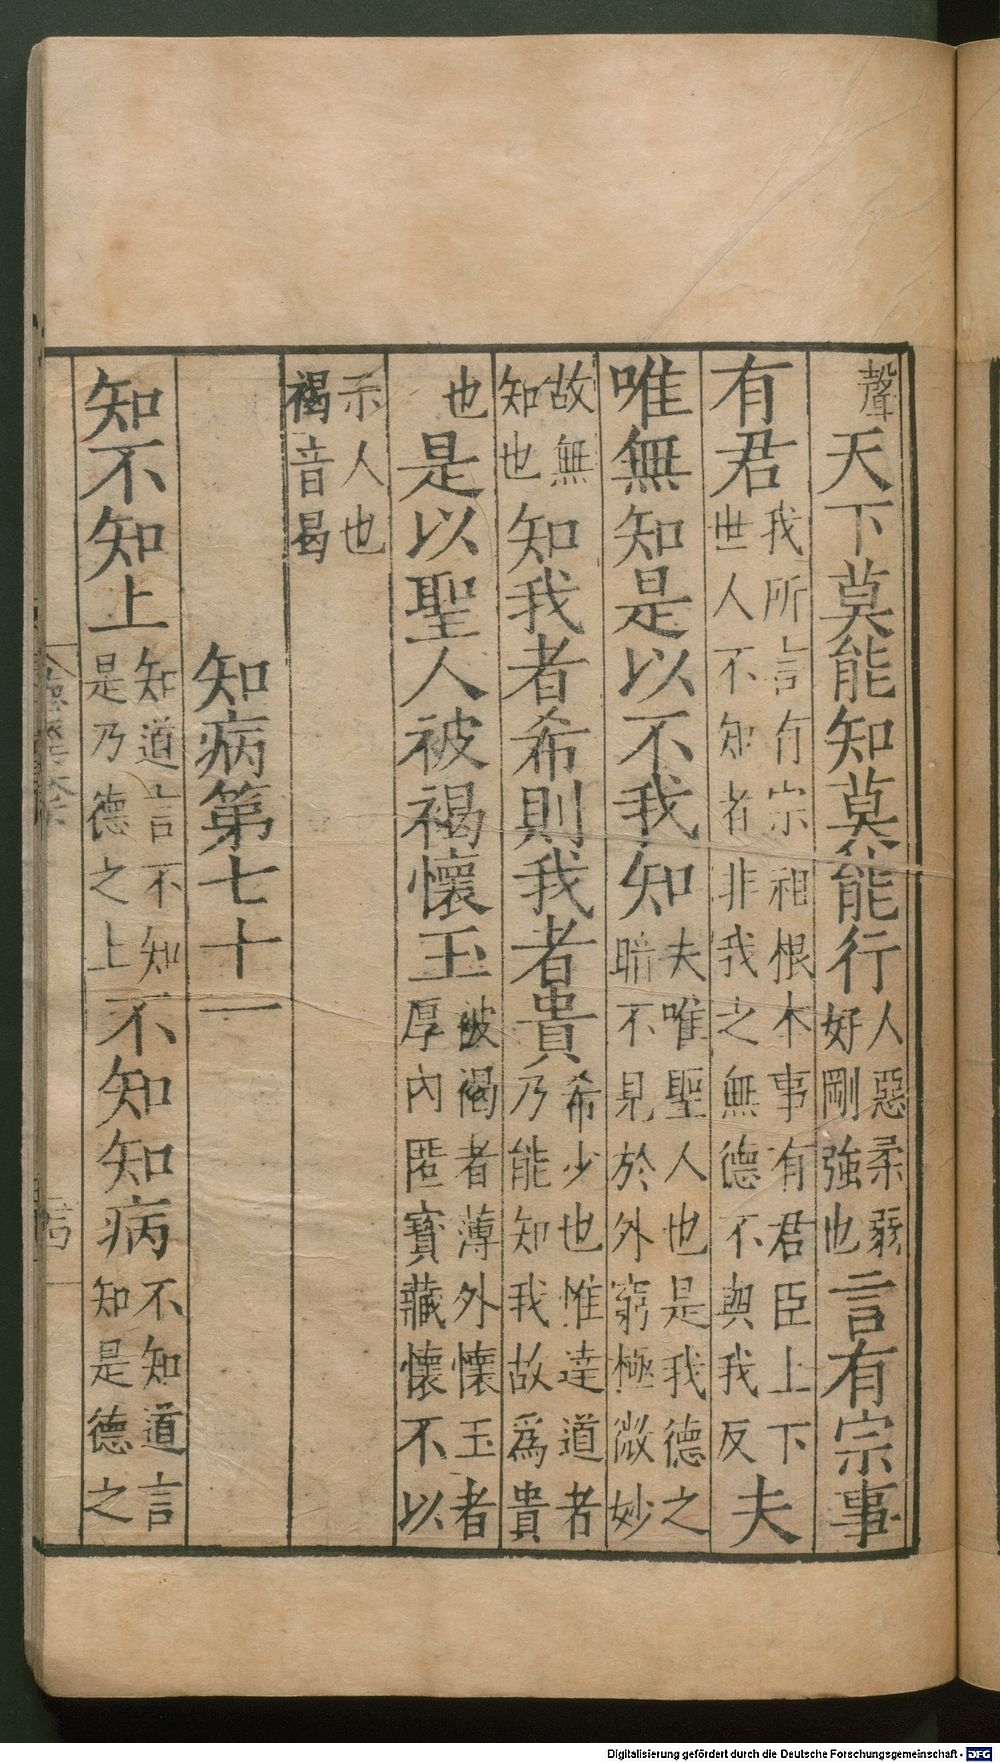 聲天下莫能知莫能行人惡柔弱好剛強也言有宗事
有君我所言有宗祖根本事有君臣上下世人不知者非我之無德不與我反夫
唯無知是以不我知夫唯聖人也是我德之暗不見於外窮極微妙
故無知也知我者希則我者貴希少也惟達道者乃能知我故爲貴
也是以聖人被褐懷玉被褐者薄外懷玉者厚內匿寶藏懷不以
示人也褐音曷
知病第七十一
知不知上知道言不知是乃德之上不知知病不知道言知是德之
Digitalisierung gefördert durch die Deutsche Forschungsgemeinschaft - DFG